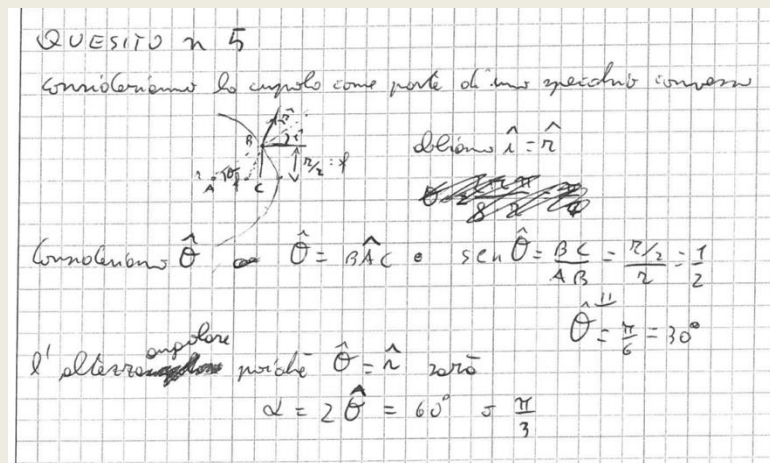 QUESITO n 5
Consideriamo la cupola come parte di uno specchio convesso
B r̂ î
r/2 = f
A θ C
abbiamo î = r̂
Consideriamo θ̂ θ̂ = BÂC e sen θ̂ = BC/AB = r/2/r = 1/2
θ̂ = π/6 = 30°
l'altezza angolare poiché θ̂ = r̂ sarà
α = 2 θ̂ = 60° = π/3